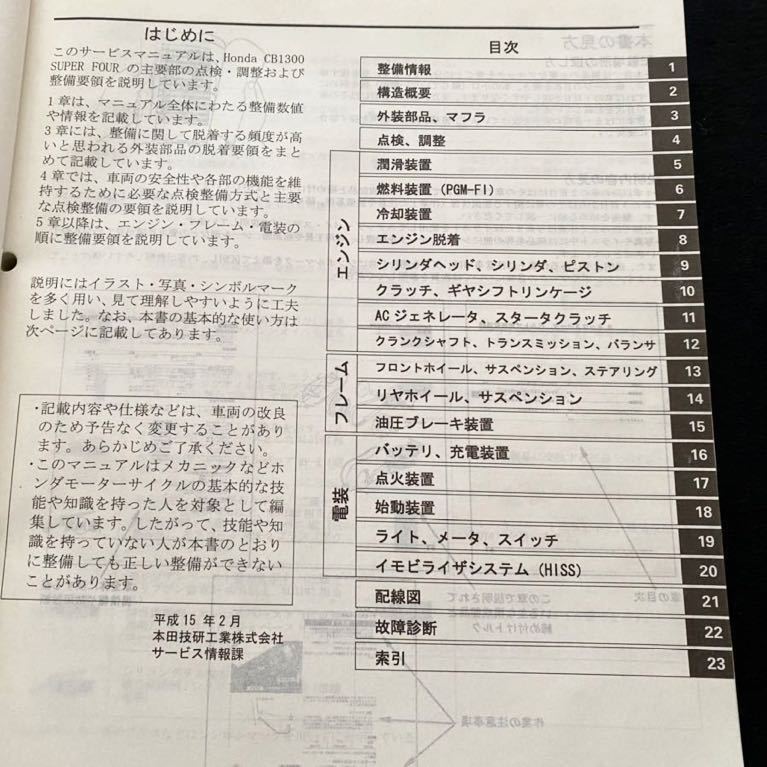 はじめに
このサービスマニュアルは、Honda CB1300
SUPER FOUR の主要部の点検・調整および
整備要領を説明しています。
1 章は、マニュアル全体にわたる整備数値
や情報を記載しています。
3 章には、整備に関して脱着する頻度が高
いと思われる外装部品の脱着要領をまと
めて記載しています。
4 章では、車両の安全性や各部の機能を維
持するために必要な点検整備方式と主要
な点検整備の要領を説明しています。
5 章以降は、エンジン・フレーム・電装の
順に整備要領を説明しています。
説明にはイラスト・写真・シンボルマーク
を多く用い、見て理解しやすいように工夫
しました。なお、本書の基本的な使い方は
次ページに記載してあります。
・記載内容や仕様などは、車両の改良
のため予告なく変更することがあり
ます。あらかじめご了承ください。
・このマニュアルはメカニックなどホ
ンダモーターサイクルの基本的な技
能や知識を持った人を対象として編
集しています。したがって、技能や知
識を持っていない人が本書のとおり
に整備しても正しい整備ができない
ことがあります。
平成 15 年 2 月
本田技研工業株式会社
サービス情報課
目次
整備情報 1
構造概要 2
外装部品、マフラ 3
点検、調整 4
エンジン
潤滑装置 5
燃料装置 (PGM-FI) 6
冷却装置 7
エンジン脱着 8
シリンダヘッド、シリンダ、ピストン 9
クラッチ、ギヤシフトリンケージ 10
AC ジェネレータ、スタータクラッチ 11
クランクシャフト、トランスミッション、バランサ 12
フレーム
フロントホイール、サスペンション、ステアリング 13
リヤホイール、サスペンション 14
油圧ブレーキ装置 15
電装
バッテリ、充電装置 16
点火装置 17
始動装置 18
ライト、メータ、スイッチ 19
イモビライザシステム (HISS) 20
配線図 21
故障診断 22
索引 23
本書の見方
作業の注意事項
章の目次
締め付けトルク